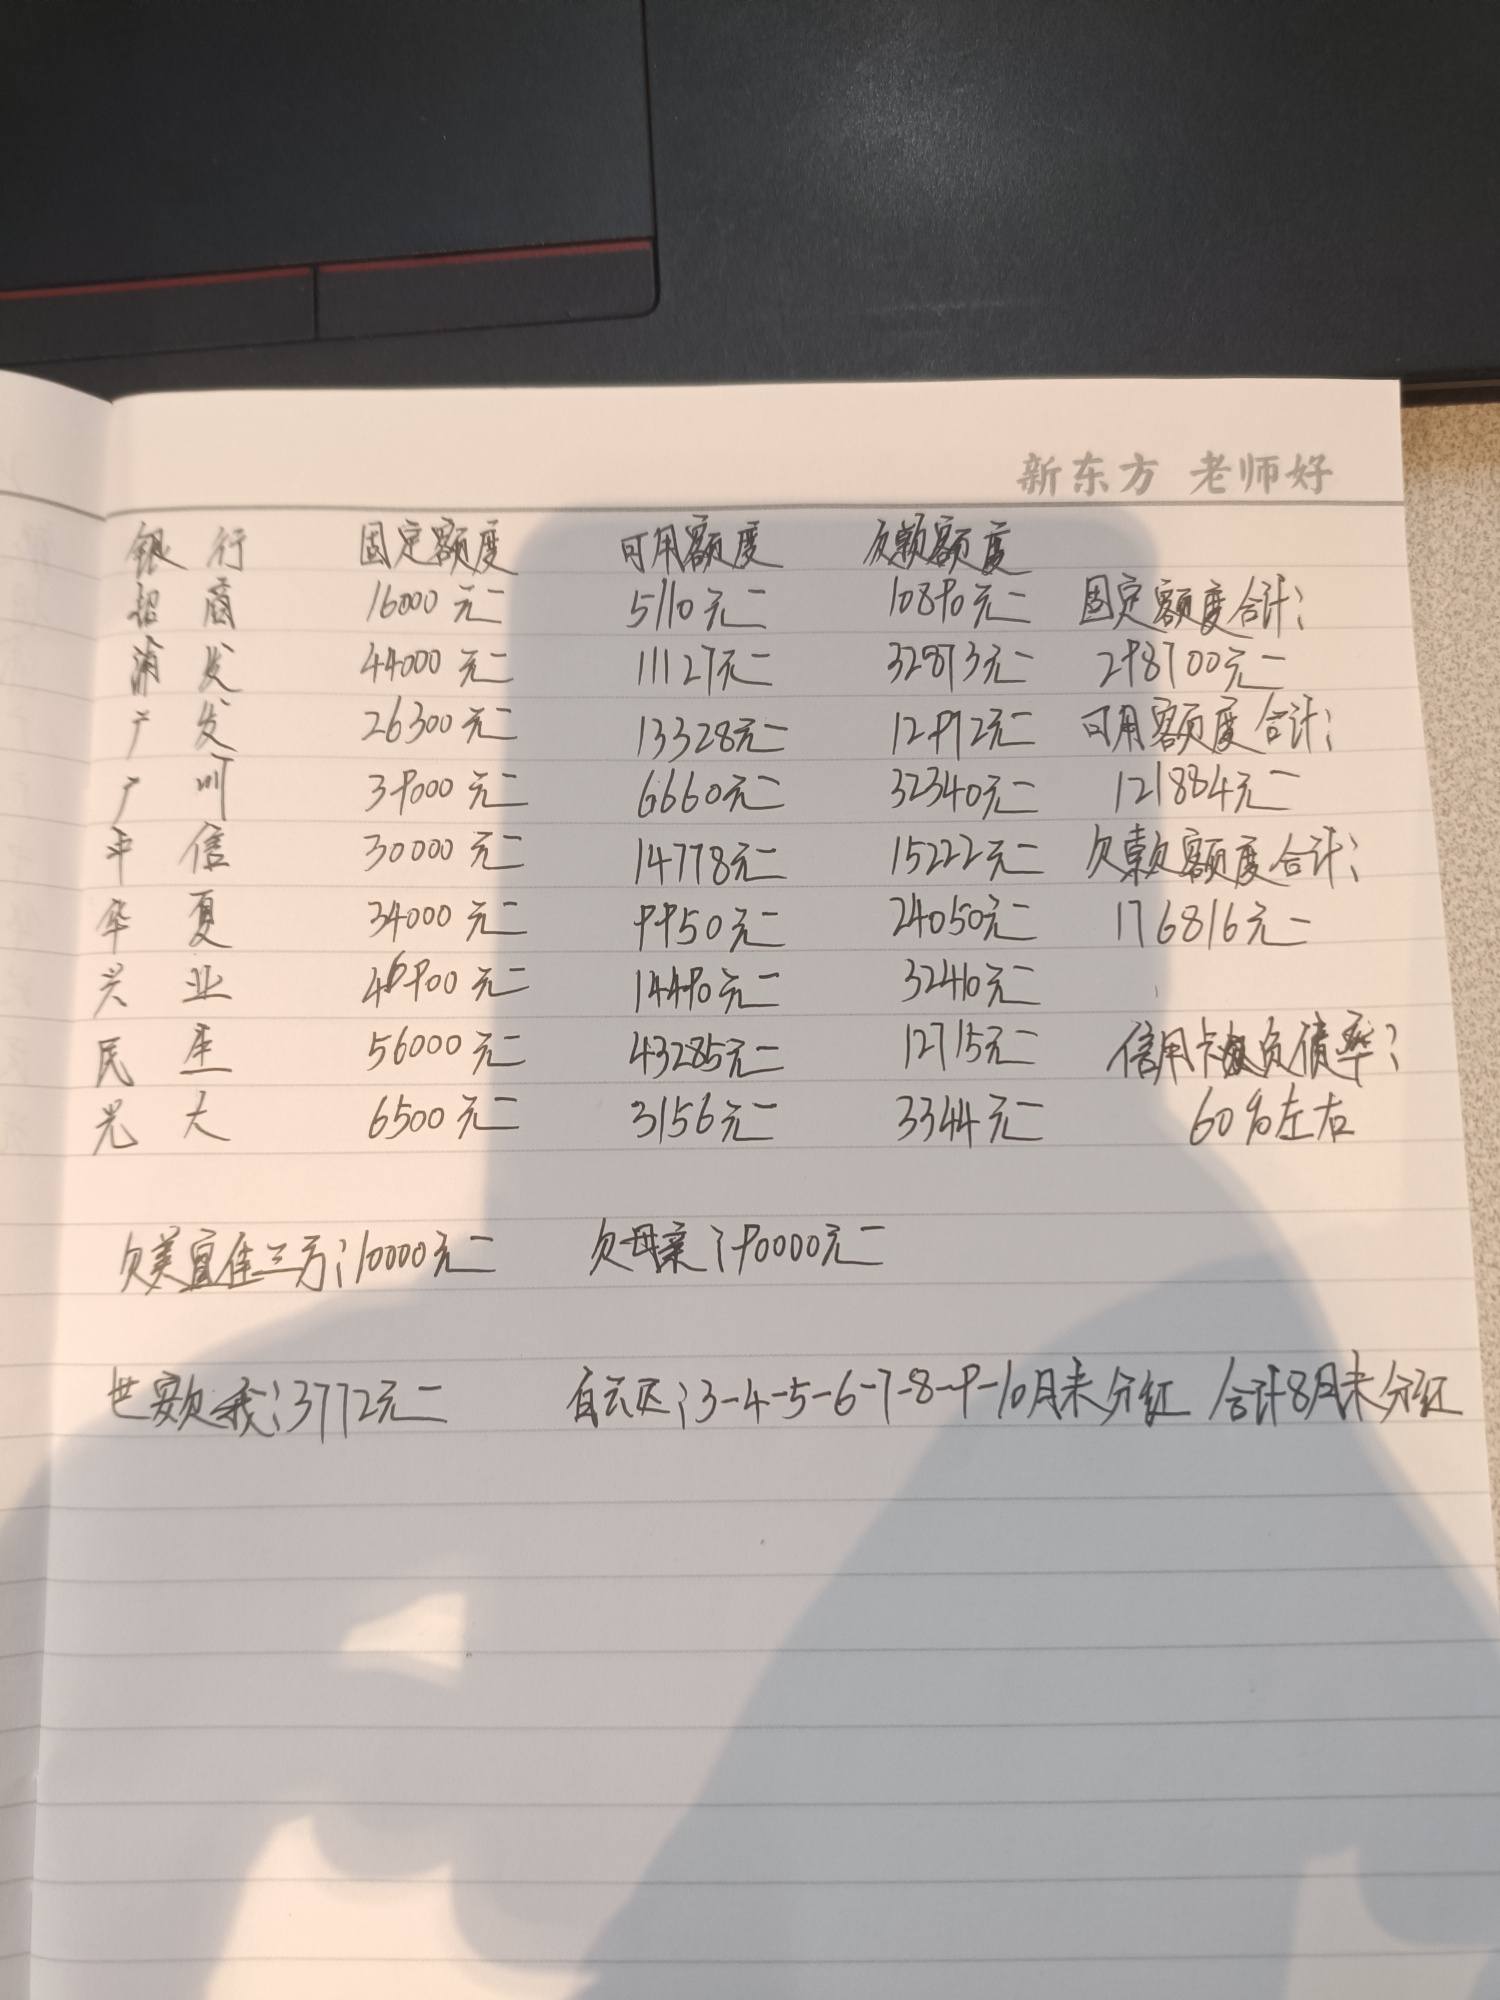 新东方 老师好
银行 固定额度 可用额度 欠款额度
招商 16000元 5110元 10890元 固定额度合计:
浦发 44000元 11127元 32873元 298700元
广发 26300元 13328元 12972元 可用额度合计:
广州 39000元 6660元 32340元 121884元
中信 30000元 14778元 15222元 欠款额度合计:
华夏 34000元 9950元 24050元 176816元
兴业 46900元 14490元 32410元
民生 56000元 43285元 12715元 信用卡负债率:
光大 6500元 3156元 3344元 60%左右
欠美宜佳三万:10000元 欠母亲:90000元
世安欠我:3772元 白云区:3-4-5-6-7-8-9-10月未分红 合计8月未分红